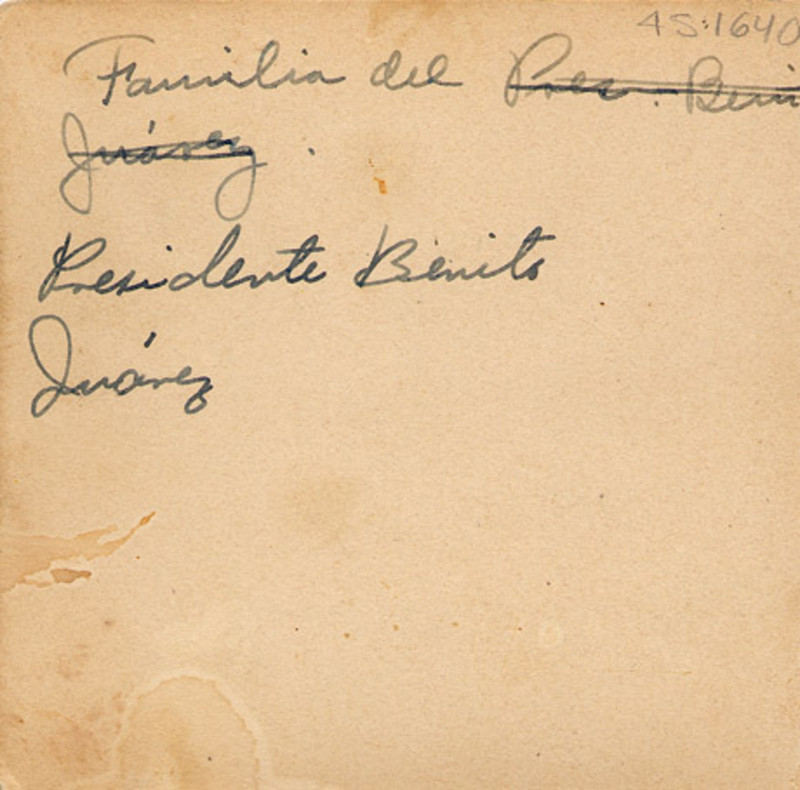 4S:1640
Familia del Pres. Beni
Juárez.
Presidente Benito
Juárez